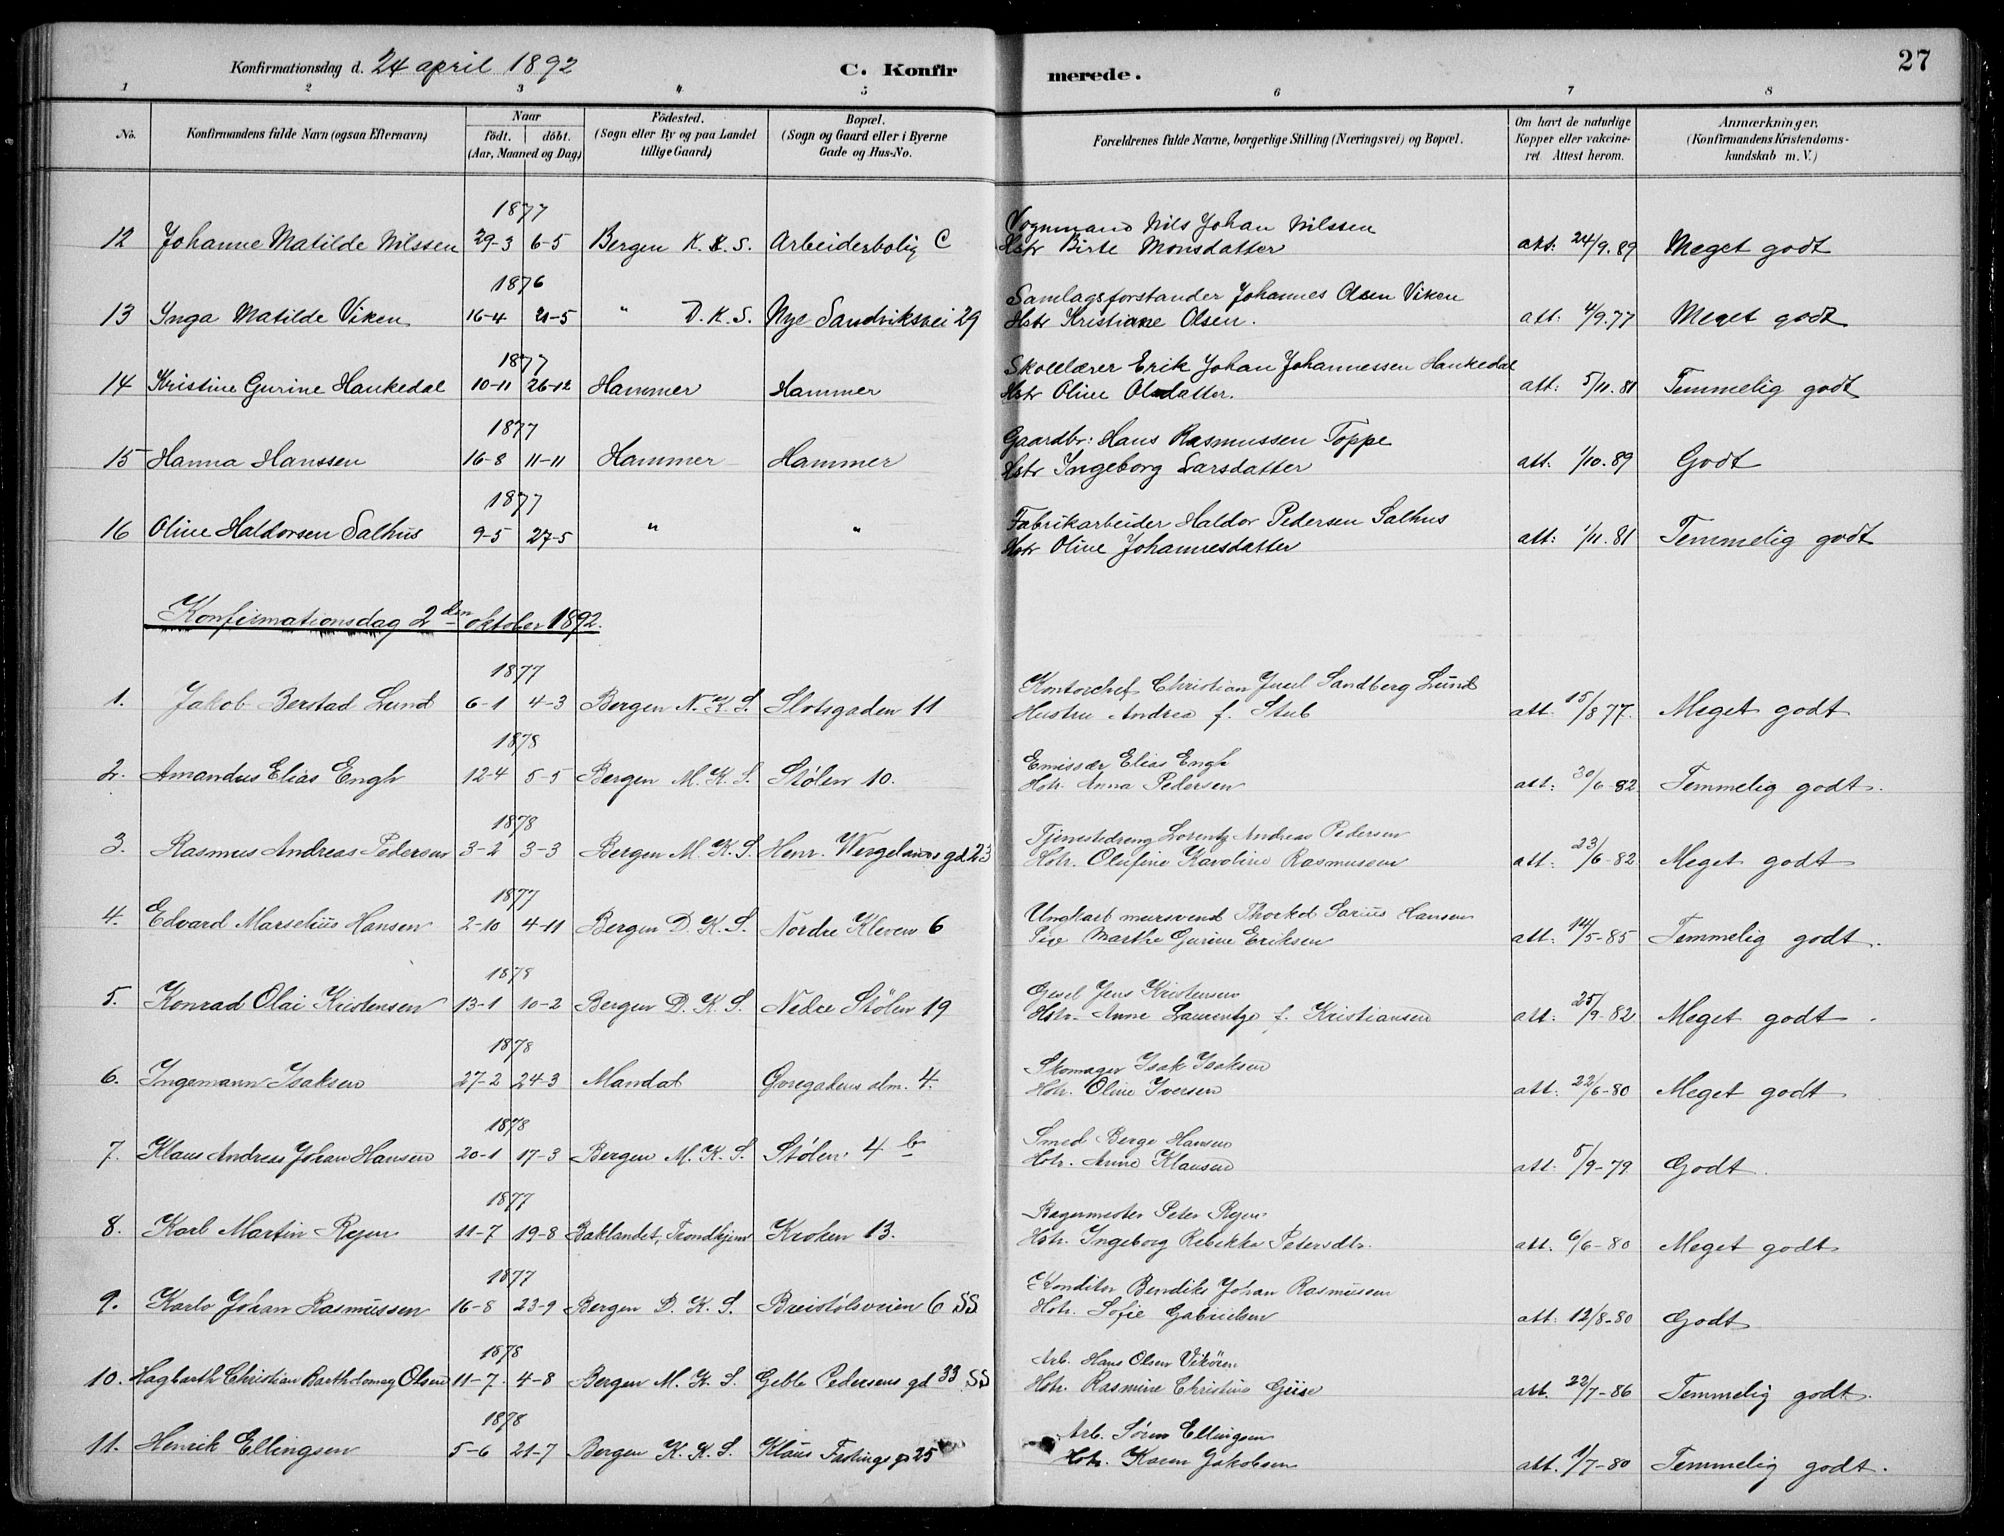 Konfirmationsdag d. 24 april 1892 C. Konfirmerede. 27
1 2 3 4 5 6 7 8
No. Konfirmandens fulde Navn (ogsaa Efternavn) Naar födt. döbt. (Aar, Maaned og Dag) Födested. (Sogn eller By og paa Landet tillige Gaard) Bopæl. (Sogn og Gaard eller i Byerne Gade og Hus-No. Forældrenes fulde Navne, borgerlige Stilling (Næringsvei) og Bopæl. Om havt de naturlige Kopper eller vakcineret. Attest herom. Anmærkninger. (Konfirmandens Kristendomskundskab m. V.)
1877 Vognmand Nils Johan Nilssen
12 Johanne Matilde Nilssen 29-3 6-5 Bergen K. K. S. Arbeiderbolig C Hstr Birte Monsdatter att: 24/9.89 Meget godt
1876 Samlagsforstander Johannes Olsen Viken
13 Inga Matilde Viken 16-4 21-5 " D.K.S. Nye Sandviksvei 29 Hstr Kristiane Olsen. att: 4/9.77 Meget godt
1877 Skolelærer Erik Johan Johannessen Haukedal
14 Kristine Gurine Haukedal 10-11 26-12 Hammer Hammer Hstr Oline Olsdatter. att: 5/11.81 Temmelig godt
1877 Gaardbr: Hans Rasmussen Toppe
15 Hanna Hanssen 16-8 11-11 Hammer Hammer Hstr Ingeborg Larsdatter att: 1/10.89 Godt
1877 Fabrikarbeider Haldor Pedersen Salhus
16 Oline Haldorsen Salhus 9-5 27-5 " " Hstr Oline Johannesdatter att: 1/11.81 Temmelig godt
Konfirmationsdag 2den oktober 1892.
1877 Kontorchef Christian Juul Sandberg Lund
1. Jakob Berstad Lund 6-1 4-3 Bergen N. K. S. Slotsgaden 11 Hustru Andrea f. Stub att. 15/8 77. Meget godt
1878 Emissær Elias Engh
2. Amandus Elias Engh 12-4 5-5 Bergen M. K. S. Stølen 10. Hstr. Anna Pedersen att: 30/6-82 Temmelig godt.
1878 Tjenestedreng Lorentz Andreas Pedersen
3. Rasmus Andreas Pedersen 3-2 3-3 Bergen M. K. S. Henr. Wergelands gd 23 Hstr. Olufine Karoline Rasmussen att: 23/6-82 Meget godt
1877 Ungkarl mursvend Hansen
4. Edvard Marselius Hansen 2-10 4-11 Bergen D. K. S. Nordre Kleven 6 Pige Marthe Gurine Eriksen att: 14/5-85 Temmelig godt.
1878 Gesel Jens Kristensen
5. Konrad Olai Kristensen 13-1 10-2 Bergen D. K. S. Nedre Stølen 19 Hstr. Anne Laurentze f. Kristiansen att: 25/9-82 Meget godt.
1878 Skomager Isak Isaksen
6. Ingemann Isaksen 27-2 24-3 Mandal Govegadens alm. 4. Hstr. Oline Iversen att: 22/6-80 Meget godt
1878 Smed Berge Hansen
7. Klaus Andreas Johan Hansen 20-1 17-3 Bergen M. K. S. Stølen 4 b Hstr. Anne Klausen att: 5/9-79 Godt.
1877 Bagermester Peter Ryen
8. Karl Martin Ryen 11-7 19-8 Baklandet, Trondhjem Kroken 13. Hstr. Ingeborg Rebekka Petersdtr. att: 6/6-80 Meget godt
1877 Konditor Bendiks Johan Rasmussen
9. Karlo Johan Rasmussen 16-8 23-9 Bergen D. K. S. Breistølsveien 6 SS. Hstr. Sofie Gabrielsen att: 12/8-80 Godt
1878 Arb. Hans Olsen Vikören
10. Hagbarth Christian Bartholomæy Olsen 11-7. 4-8 Bergen M. K. S. Geble Pedersens gd 33 SS Hstr. Rasmine Christine Giise att. 22/7-86 Temmelig godt.
1878 Arb. Søren Ellingsen
11. Henrik Ellingsen 5-6 21-7 Bergen K. K. S. Klaus Fastings g 25 Hstr. Karen Jakobsen att. 1/7-80 Temmelig godt.